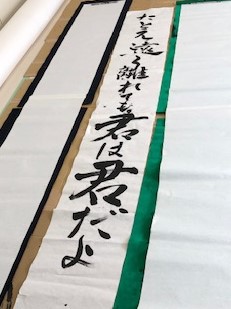 たとえ遠く離れても君は君だよ